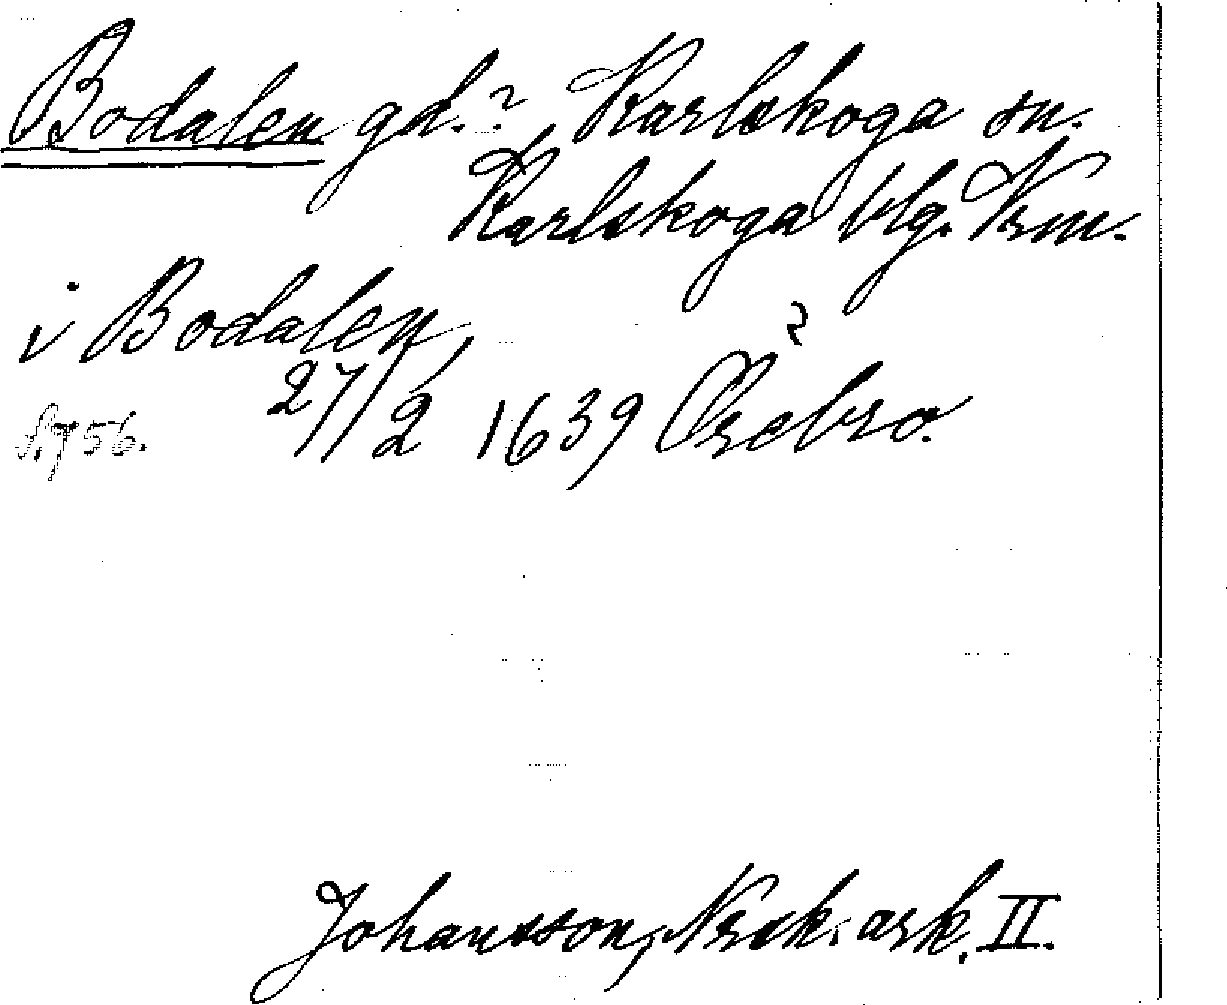 Bodalen gd.? Karlskoga sn.
Karlskoga blg. Krm.
i Bodalen,
27/2 1639 Örebro.
56.
Johansson, Nrok. ark. II.